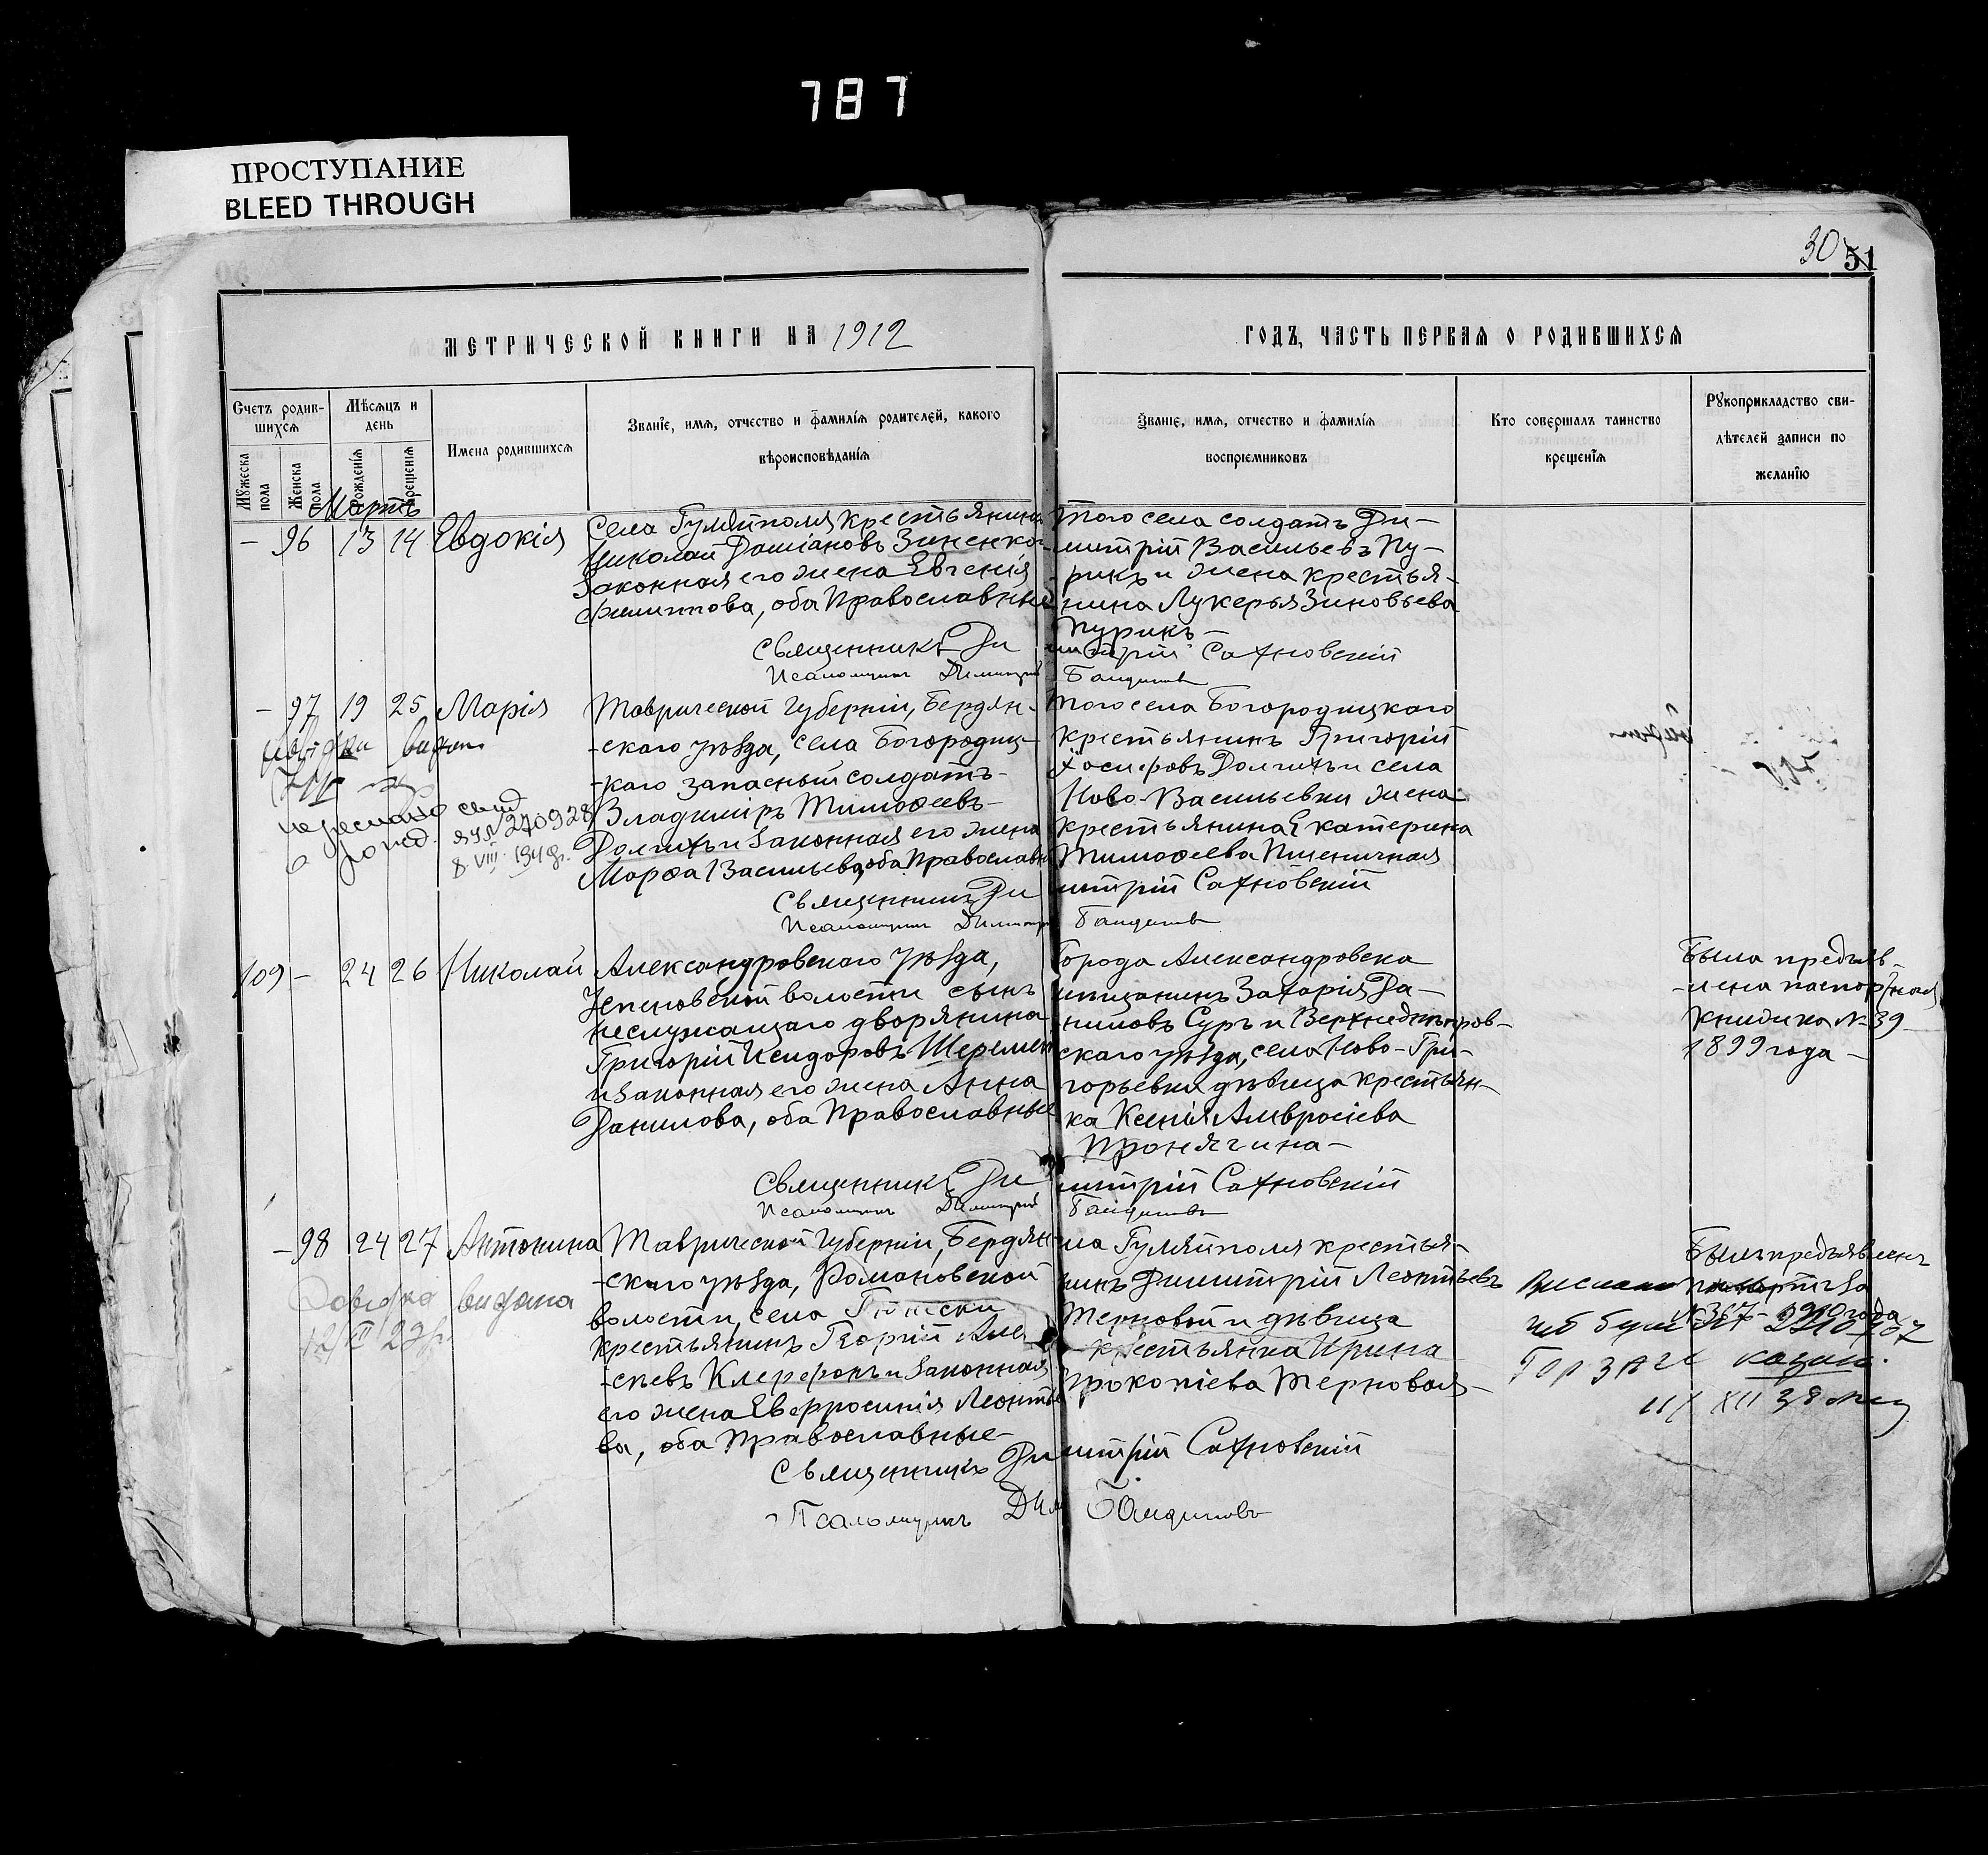 787
ПРОСТУПАНИЕ
BLEED THROUGH
30 51
МЕТРИЧЕСКОЙ КНИГИ НА 1912
ГОДЪ, ЧАСТЬ ПЕРВАЯ О РОДИВШИХСЯ
Счетъ родив-
шихся
Мужеска пола
Женска пола
Мѣсяцъ и
день
Рожденія
Крещенія
Имена родившихся
Званіе, имя, отчество и фамилія родителей, какого
вѣроисповѣданія
Званіе, имя, отчество и фамилія
воспріемниковъ
Кто совершалъ таинство
крещенія
Рукоприкладство сви-
дѣтелей записи по
желанію
Мартъ
– 96 13 14 Евдокія
Села Гуляйполя крестьянинъ
Николай Даміановъ Зиненко
Законная его жена Евгенія
Филиппова, оба Православные
Того села солдатъ Ди-
митрій Васильевъ Пу-
рикъ и жена крестья-
нина Лукерья Зиновьева
Пурикъ –
Священникъ Димитрій Сахновскій
Псаломщикъ Димитрій
– 97 19 25 Марія
Таврической губерніи, Бердян-
-скаго уѣзда, села Богородиц-
-каго запасный солдатъ-
Владиміръ Тимофеевъ-
Долгихъ и законная его жена
Марфа Васильева, оба Православн
Того села Богородицкаго
крестьянинъ Григорій
Іосифовъ Долгихъ и села
Ново-Васильевки жена
крестьянина Екатерина
Тимофеева Пшеничная
270928
8 VIII
Священникъ Димитрій Сахновскій
Псаломщикъ Димитрій
109 – 24 26 Николай
Александровскаго уѣзда,
Успеновской волости сынъ
неслужащаго дворянина
Григорій Исидоровъ Шеремет
и законная его жена Анна
Данилова, оба Православные
Города Александровска
мѣщанинъ Захарія Да-
ниловъ Суръ и Верхнеднѣпров-
скаго уѣзда, села Ново-Гри-
горьевки дѣвица крестьян-
ка Ксенія Амвросіева
Пронягина –
Была предъяв-
-лена паспортная
книжка № 39
1899 года –
Священникъ Димитрій Сахновскій
Псаломщикъ Димитрій
– 98 24 27 Антонина
Таврической губерніи, Бердян
-скаго уѣзда, Романовской
волости, села
крестьянинъ Георгій Але
-сѣевъ и законная
его жена Евфросинія Леонтье
ва, оба Православные –
ла Гуляйполя крестья-
нинъ Димитрій Леонтьевъ
Терновой и дѣвица
крестьянка Ирина
Прокопіева Терновая –
Былъ предъявленъ
за
№ 367 1910 года
видана
Священникъ Димитрій Сахновскій
Псаломщикъ Дим